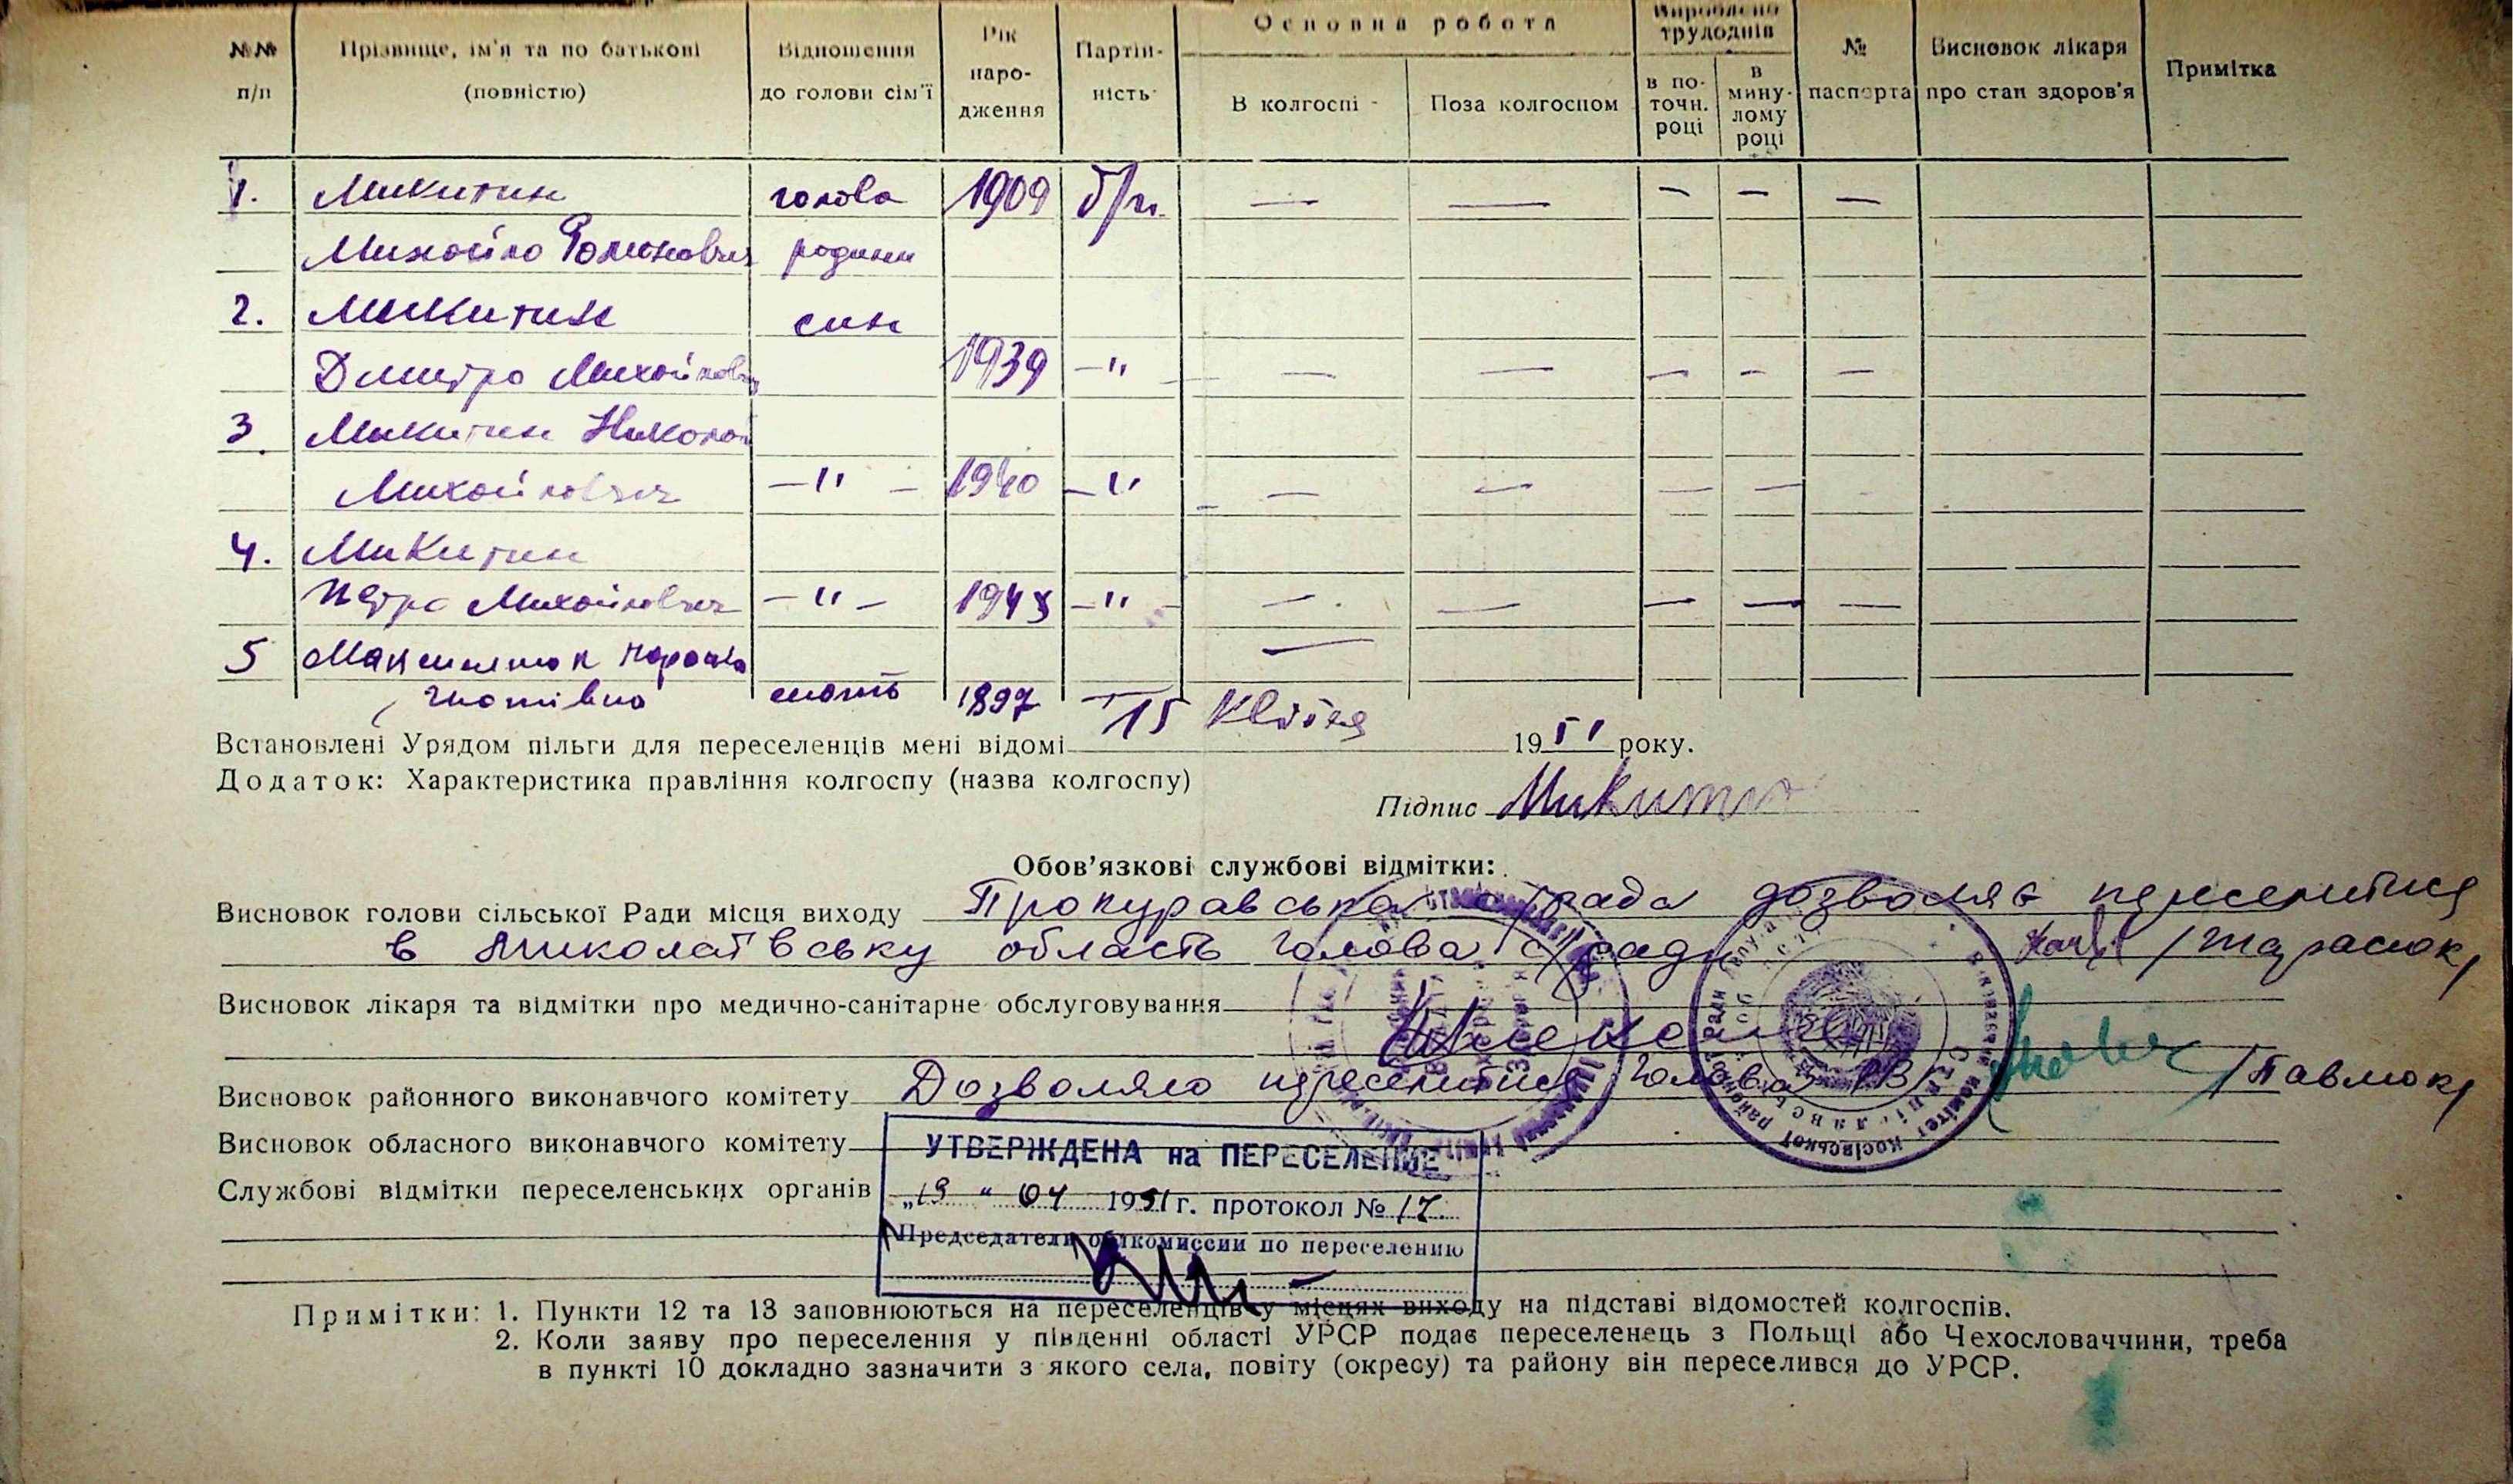 №№ п/п
Прізвище, ім'я та по батькові (повністю)
Відношення до голови сім'ї
Рік народження
Партійність
Основна робота
В колгоспі - Поза колгоспом
Вироблено трудоднів
в поточн. році
в минулому році
№ паспорта
Висновок лікаря про стан здоров'я
Примітка
1. Микитин голова 1909 б/п. — — — — —
Михайло Романович родини
2. Микитин син
Дмитро Михайлович 1939 —"— — — — — —
3 Микитин Николай
Михайлович —"— 1940 —"— — — — —
4. Микитин
Петро Михайлович —"— 1943 —"— — — — — —
5 Максимюк Параска —
Гнатівна мать 1897
Встановлені Урядом пільги для переселенців мені відомі 15 квітня 1951 року.
Додаток: Характеристика правління колгоспу (назва колгоспу)
Підпис Микитин
Обов'язкові службові відмітки:
Висновок голови сільської Ради місця виходу Прокуравська с/рада дозволяє переселитися
в Миколаївську область Голова с/ради /Тарасюк/
Висновок лікаря та відмітки про медично-санітарне обслуговування
Висновок районного виконавчого комітету Дозволяю переселитися Голова РВК /Павлюк/
Висновок обласного виконавчого комітету
УТВЕРЖДЕНА на ПЕРЕСЕЛЕНИЕ
Службові відмітки переселенських органів
„19" 04 1951 г. протокол № 17.
Председатель облкомиссии по переселению
Примітки: 1. Пункти 12 та 13 заповнюються на переселенців у місцях виходу на підставі відомостей колгоспів.
2. Коли заяву про переселення у південні області УРСР подає переселенець з Польщі або Чехословаччини, треба
в пункті 10 докладно зазначити з якого села, повіту (окресу) та району він переселився до УРСР.